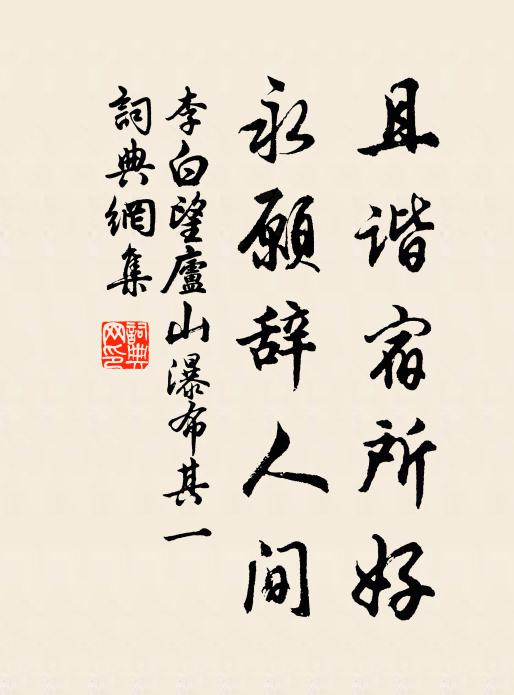 且谐宿所好
永愿辞人间
李白望廬山瀑布其一
詞典網集
詞典網印